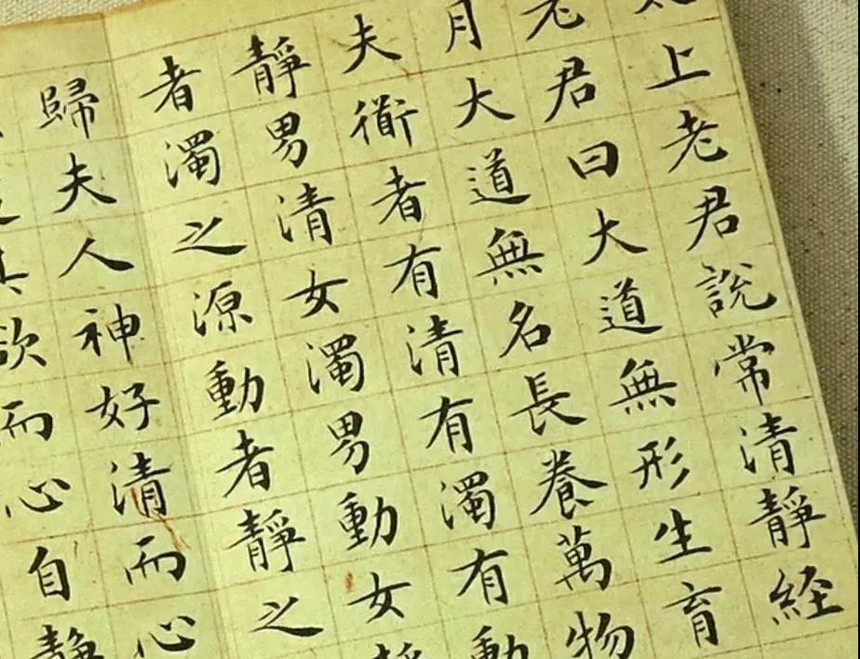 太上老君說常清靜経
老君曰大道無形生育
月大道無名長養萬物
夫衜者有清有濁有動
靜男清女濁男動女靜
者濁之源動者靜之
歸夫人神好清而心
其欲而心自靜